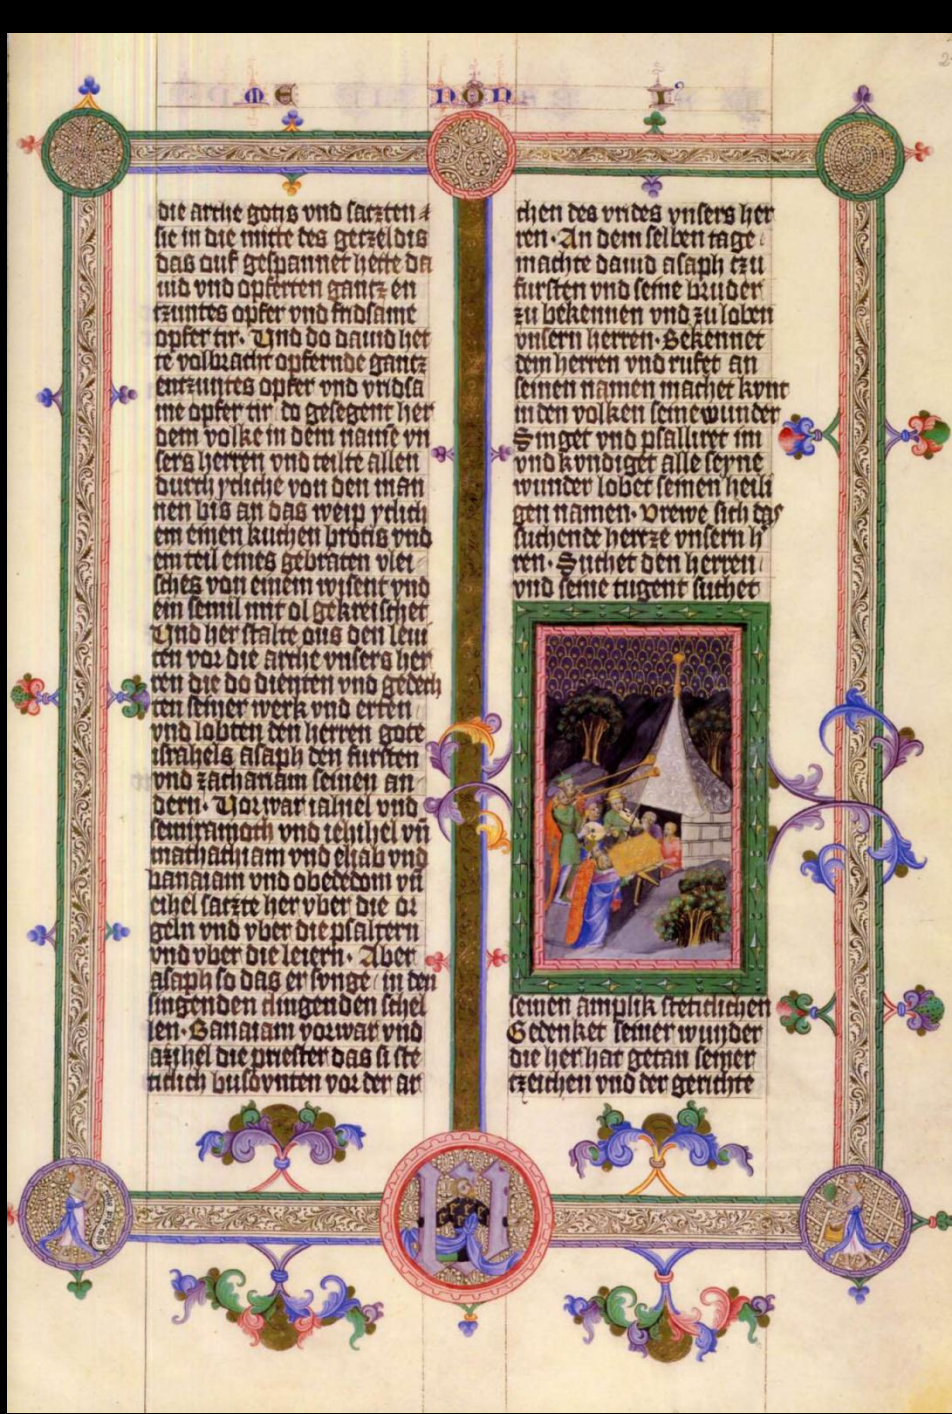 ME NON I
die arche gotis vnd saczten
sie in die mitte des geczeldis
das ouf gespannet hette da
uid vnd opferten gantz en
czuntes opfer vnd fridsame
opfer tir. Und do dauid het
te volbracht opfernde gantz
entzuntes opfer vnd vridsa
me opfer tir do gesegent her
dem volke in dem name vn
sers herren vnd teilte allen
durch ytliche von den man
nen bis an das weip ytlich
em einen kuchen brotis vnd
ein teil eines gebraten vlei
sches von einem wisent vnd
ein semil mit ol gekreischet
Und her stalte ous den leui
ten vor die arche vnsers her
ren die do dienten vnd gedech
ten seiner werk vnd erten
vnd lobten den herren gote
israhels asaph den fursten
vnd zachariam seinen an
dern. Vorwar iahiel vnd
semiramoth vnd iehihel vn̄
mathathiam vnd eliab vnd
banaiam vnd obededom vn̄
eihel saczte her vber die or
geln vnd vber die psaltern
vnd vber die leiern. Aber
asaph so das er synge in den
singenden clingenden schel
len. Banaiam vorwar vnd
azihel die priester das si ste
ticlich busovnten vor der ar
chen des vrides vnsers her
ren. An dem selben tage
machte dauid asaph czu
fursten vnd seine bruder
zu bekennen vnd zu loben
vnsern herren. Bekennet
dem herren vnd rufet an
seinen namen machet kvnt
in den volken seine wunder
Singet vnd psalliret im
vnd kvndiget alle seyne
wunder lobet seinen heili
gen namen. Vrewe sich das
suchende hertze vnsern h
ren. Suchet den herren
vnd seine tugent suchet
seinen amplik steticlichen
Gedenket seiner wunder
die her hat getan seiner
czeichen vnd der gerichte